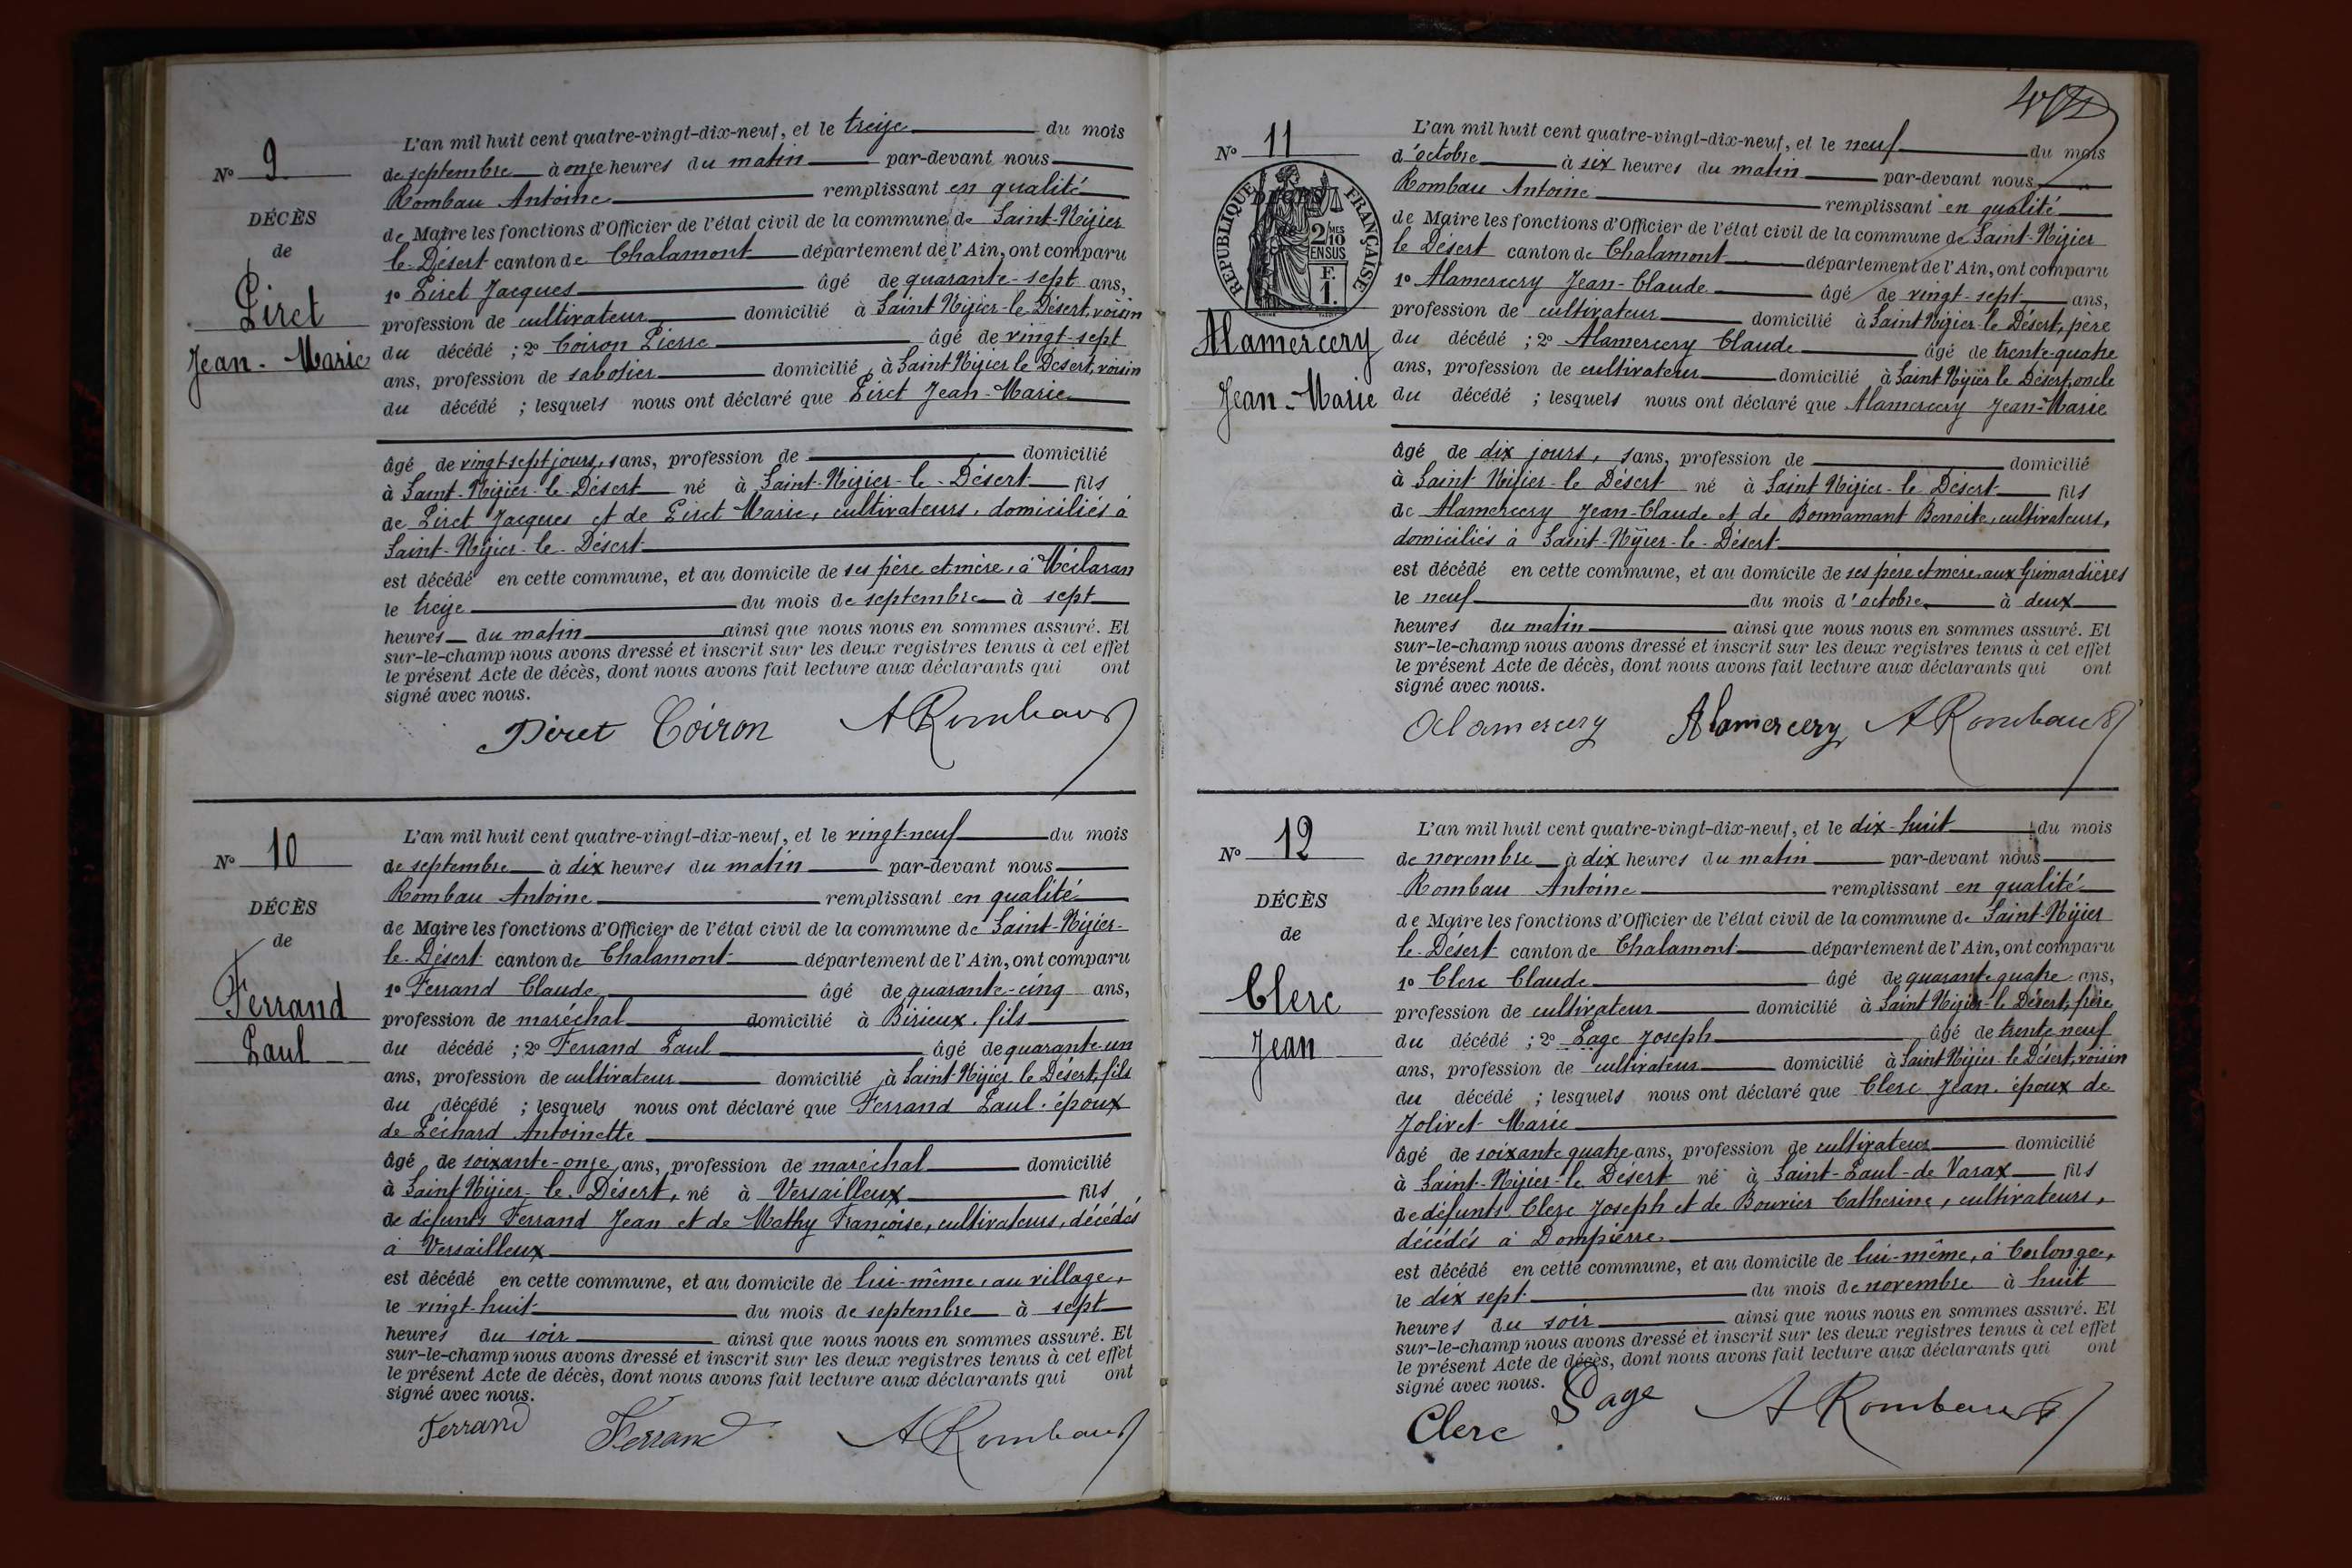 N° 9
DÉCÈS
de
Piret
Jean-Marie
L'an mil huit cent quatre-vingt-dix-neuf, et le treize du mois
de septembre à onze heures du matin par-devant nous
Rombau Antoine remplissant en qualité
de Maire les fonctions d'Officier de l'état civil de la commune de Saint-Nizier
le-Désert canton de Chalamont département de l'Ain, ont comparu
1° Piret Jacques âgé de quarante-sept ans,
profession de cultivateur domicilié à Saint Nizier-le-Désert, voisin
du décédé ; 2° Coiron Pierre âgé de vingt-sept
ans, profession de sabotier domicilié à Saint Nizier le Désert, voisin
du décédé ; lesquels nous ont déclaré que Piret Jean-Marie
âgé de vingt-sept jours, sans, profession de domicilié
à Saint-Nizier-le-Désert né à Saint-Nizier-le-Désert fils
de Piret Jacques et de Piret Marie, cultivateurs, domiciliés à
Saint-Nizier-le-Désert
est décédé en cette commune, et au domicile de ses père et mère, à
le treize du mois de septembre à sept
heures du matin ainsi que nous nous en sommes assuré. Et
sur-le-champ nous avons dressé et inscrit sur les deux registres tenus à cet effet
le présent Acte de décès, dont nous avons fait lecture aux déclarants qui ont
signé avec nous.
Piret Coiron A Rombaud
N° 10
DÉCÈS
de
Ferrand
Paul
L'an mil huit cent quatre-vingt-dix-neuf, et le vingt-neuf du mois
de septembre à dix heures du matin par-devant nous
Rombau Antoine remplissant en qualité
de Maire les fonctions d'Officier de l'état civil de la commune de Saint-Nizier-
le-Désert canton de Chalamont département de l'Ain, ont comparu
1° Ferrand Claude âgé de quarante-cinq ans,
profession de maréchal domicilié à Birieux, fils
du décédé ; 2° Ferrand Paul âgé de quarante-un
ans, profession de cultivateur domicilié à Saint-Nizier le Désert, fils
du décédé ; lesquels nous ont déclaré que Ferrand Paul, époux
de Péchard Antoinette
âgé de soixante-onze ans, profession de maréchal domicilié
à Saint Nizier-le-Désert, né à Versailleux fils
de défunts Ferrand Jean et de Mathy Françoise, cultivateurs, décédés
à Versailleux
est décédé en cette commune, et au domicile de lui-même, au village,
le vingt-huit du mois de septembre à sept
heures du soir ainsi que nous nous en sommes assuré. Et
sur-le-champ nous avons dressé et inscrit sur les deux registres tenus à cet effet
le présent Acte de décès, dont nous avons fait lecture aux déclarants qui ont
signé avec nous.
Ferrand Ferrand A Rombaud
N° 11
DÉCÈS
RÉPUBLIQUE FRANÇAISE
2/10 MES
EN SUS
F.
1.
Alamercery
Jean-Marie
L'an mil huit cent quatre-vingt-dix-neuf, et le neuf du mois
d'octobre à six heures du matin par-devant nous
Rombau Antoine remplissant en qualité
de Maire les fonctions d'Officier de l'état civil de la commune de Saint-Nizier
le Désert canton de Chalamont département de l'Ain, ont comparu
1° Alamercery Jean-Claude âgé de vingt-sept ans,
profession de cultivateur domicilié à Saint Nizier-le Désert, père
du décédé ; 2° Alamercery Claude âgé de trente-quatre
ans, profession de cultivateur domicilié à Saint Nizier le Désert, oncle
du décédé ; lesquels nous ont déclaré que Alamercery Jean-Marie
âgé de dix jours, sans, profession de domicilié
à Saint Nizier-le Désert né à Saint Nizier-le Désert fils
de Alamercery Jean-Claude et de Bonnamant Benoite, cultivateurs,
domiciliés à Saint-Nizier-le-Désert
est décédé en cette commune, et au domicile de ses père et mère, aux Grimardières
le neuf du mois d'octobre à deux
heures du matin ainsi que nous nous en sommes assuré. Et
sur-le-champ nous avons dressé et inscrit sur les deux registres tenus à cet effet
le présent Acte de décès, dont nous avons fait lecture aux déclarants qui ont
signé avec nous.
Alamercery Alamercery A Rombaud
N° 12
DÉCÈS
de
Clerc
Jean
L'an mil huit cent quatre-vingt-dix-neuf, et le dix-huit du mois
de novembre à dix heures du matin par-devant nous
Rombau Antoine remplissant en qualité
de Maire les fonctions d'Officier de l'état civil de la commune de Saint-Nizier
le-Désert canton de Chalamont département de l'Ain, ont comparu
1° Clerc Claude âgé de quarante quatre ans,
profession de cultivateur domicilié à Saint Nizier-le Désert, frère
du décédé ; 2° Page Joseph âgé de trente neuf
ans, profession de cultivateur domicilié à Saint Nizier-le Désert, voisin
du décédé ; lesquels nous ont déclaré que Clerc Jean, époux de
Jolivet Marie
âgé de soixante quatre ans, profession de cultivateur domicilié
à Saint-Nizier-le Désert né à Saint-Paul-de Varax fils
de défunts Clerc Joseph et de Bouvier Catherine, cultivateurs,
décédés à Dompierre
est décédé en cette commune, et au domicile de lui-même, à Corlonge,
le dix sept du mois de novembre à huit
heures du soir ainsi que nous nous en sommes assuré. Et
sur-le-champ nous avons dressé et inscrit sur les deux registres tenus à cet effet
le présent Acte de décès, dont nous avons fait lecture aux déclarants qui ont
signé avec nous.
Clerc Page A Rombaud